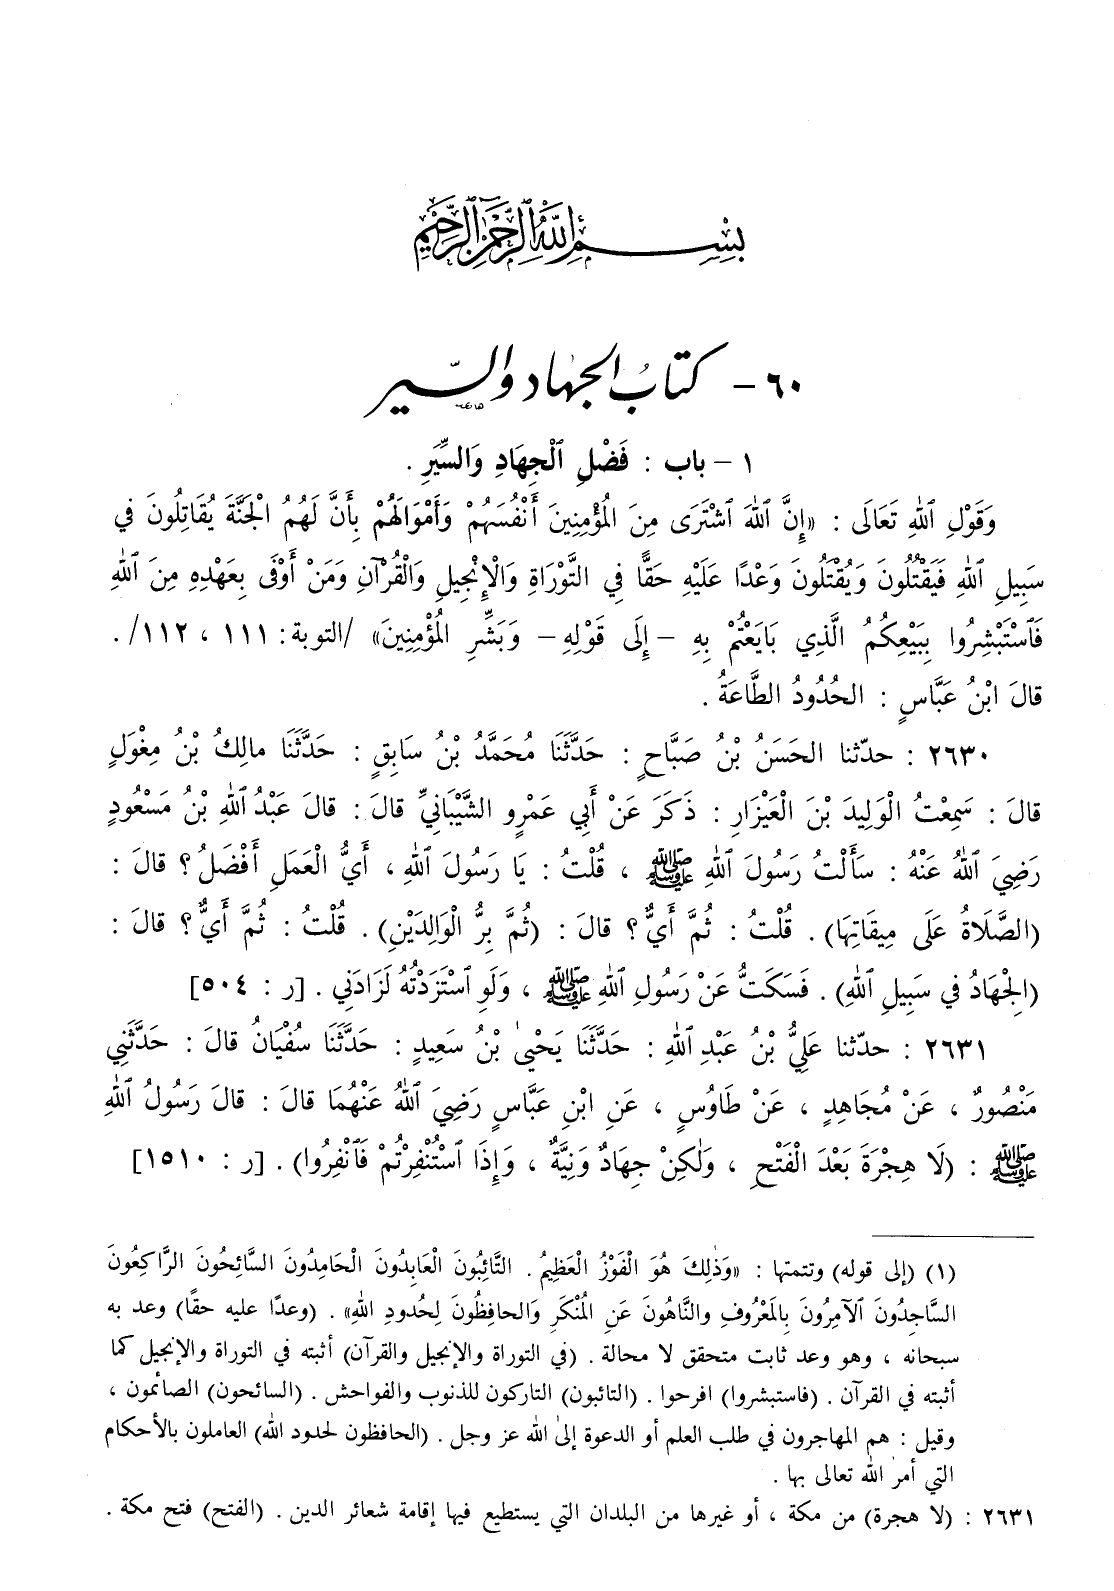 بِسْمِ اللهِ الرَّحْمٰنِ الرَّحِيمِ
٦٠ - كتابُ الجهاد والسّير
١ - باب : فَضْلِ ٱلْجِهَادِ وَالسِّيَرِ .
وَقَوْلِ ٱللهِ تَعَالَى : «إِنَّ ٱللهَ ٱشْتَرَى مِنَ المُؤْمِنِينَ أَنْفُسَهُمْ وَأَمْوَالَهُمْ بِأَنَّ لَهُمُ الْجَنَّةَ يُقَاتِلُونَ في
سَبِيلِ ٱللهِ فَيَقْتُلُونَ وَيُقْتَلُونَ وَعْدًا عَلَيْهِ حَقًّا فِي التَّوْرَاةِ وَالْإِنْجِيلِ وَالْقُرْآنِ وَمَنْ أَوْفَى بِعَهْدِهِ مِنَ ٱللهِ
فَٱسْتَبْشِرُوا بِبَيْعِكُمُ الَّذِي بَايَعْتُمْ بِهِ - إِلَى قَوْلِهِ - وَبَشِّرِ المُؤْمِنِينَ» /التوبة: ١١١ ، ١١٢/ .
قالَ ابْنُ عَبَّاسٍ : الحُدُودُ الطَّاعَةُ .
٢٦٣٠ : حدّثنا الحَسَنُ بْنُ صَبَّاحٍ : حَدَّثَنَا مُحَمَّدُ بْنُ سَابِقٍ : حَدَّثَنَا مالِكُ بْنُ مِغْوَلٍ
قالَ : سَمِعْتُ الْوَلِيدَ بْنَ الْعَيْزَارِ : ذَكَرَ عَنْ أَبِي عَمْرٍو الشَّيْبَانِيِّ قالَ : قالَ عَبْدُ ٱللهِ بْنُ مَسْعُودٍ
رَضِيَ ٱللهُ عَنْهُ : سَأَلْتُ رَسُولَ ٱللهِ ﷺ ، قُلْتُ : يَا رَسُولَ ٱللهِ ، أَيُّ الْعَمَلِ أَفْضَلُ ؟ قالَ :
(الصَّلَاةُ عَلَى مِيقَاتِهَا) . قُلْتُ : ثُمَّ أَيٌّ ؟ قالَ : (ثُمَّ بِرُّ الْوَالِدَيْنِ) . قُلْتُ : ثُمَّ أَيٌّ ؟ قالَ :
(الْجِهَادُ في سَبِيلِ ٱللهِ) . فَسَكَتُّ عَنْ رَسُولِ ٱللهِ ﷺ ، وَلَوِ ٱسْتَزَدْتُهُ لَزَادَنِي . [ر : ٥٠٤]
٢٦٣١ : حدّثنا عَلِيُّ بْنُ عَبْدِ ٱللهِ : حَدَّثَنَا يَحْيىٰ بْنُ سَعِيدٍ : حَدَّثَنَا سُفْيَانُ قالَ : حَدَّثَنِي
مَنْصُورٌ ، عَنْ مُجَاهِدٍ ، عَنْ طَاوُسٍ ، عَنِ ابْنِ عَبَّاسٍ رَضِيَ ٱللهُ عَنْهُمَا قالَ : قالَ رَسُولُ ٱللهِ
ﷺ : (لَا هِجْرَةَ بَعْدَ الْفَتْحِ ، وَلٰكِنْ جِهَادٌ وَنِيَّةٌ ، وَإِذَا ٱسْتُنْفِرْتُمْ فَٱنْفِرُوا) . [ر : ١٥١٠]
(١) (إلى قوله) وتتمتها : «وَذٰلِكَ هُوَ الْفَوْزُ الْعَظِيمُ . التَّائِبُونَ الْعَابِدُونَ الْحَامِدُونَ السَّائِحُونَ الرَّاكِعُونَ
السَّاجِدُونَ الْآمِرُونَ بِالمَعْرُوفِ وَالنَّاهُونَ عَنِ المُنْكَرِ وَالحافِظُونَ لِحُدُودِ اللهِ» . (وعدًا عليه حقًا) وعد به
سبحانه ، وهو وعد ثابت متحقق لا محالة . (في التوراة والإنجيل والقرآن) أثبته في التوراة والإنجيل كما
أثبته في القرآن . (فاستبشروا) افرحوا . (التائبون) التاركون للذنوب والفواحش . (السائحون) الصائمون ،
وقيل : هم المهاجرون في طلب العلم أو الدعوة إلىٰ الله عز وجل . (الحافظون لحدود الله) العاملون بالأحكام
التي أمر الله تعالى بها .
٢٦٣١ : (لا هجرة) من مكة ، أو غيرها من البلدان التي يستطيع فيها إقامة شعائر الدين . (الفتح) فتح مكة .